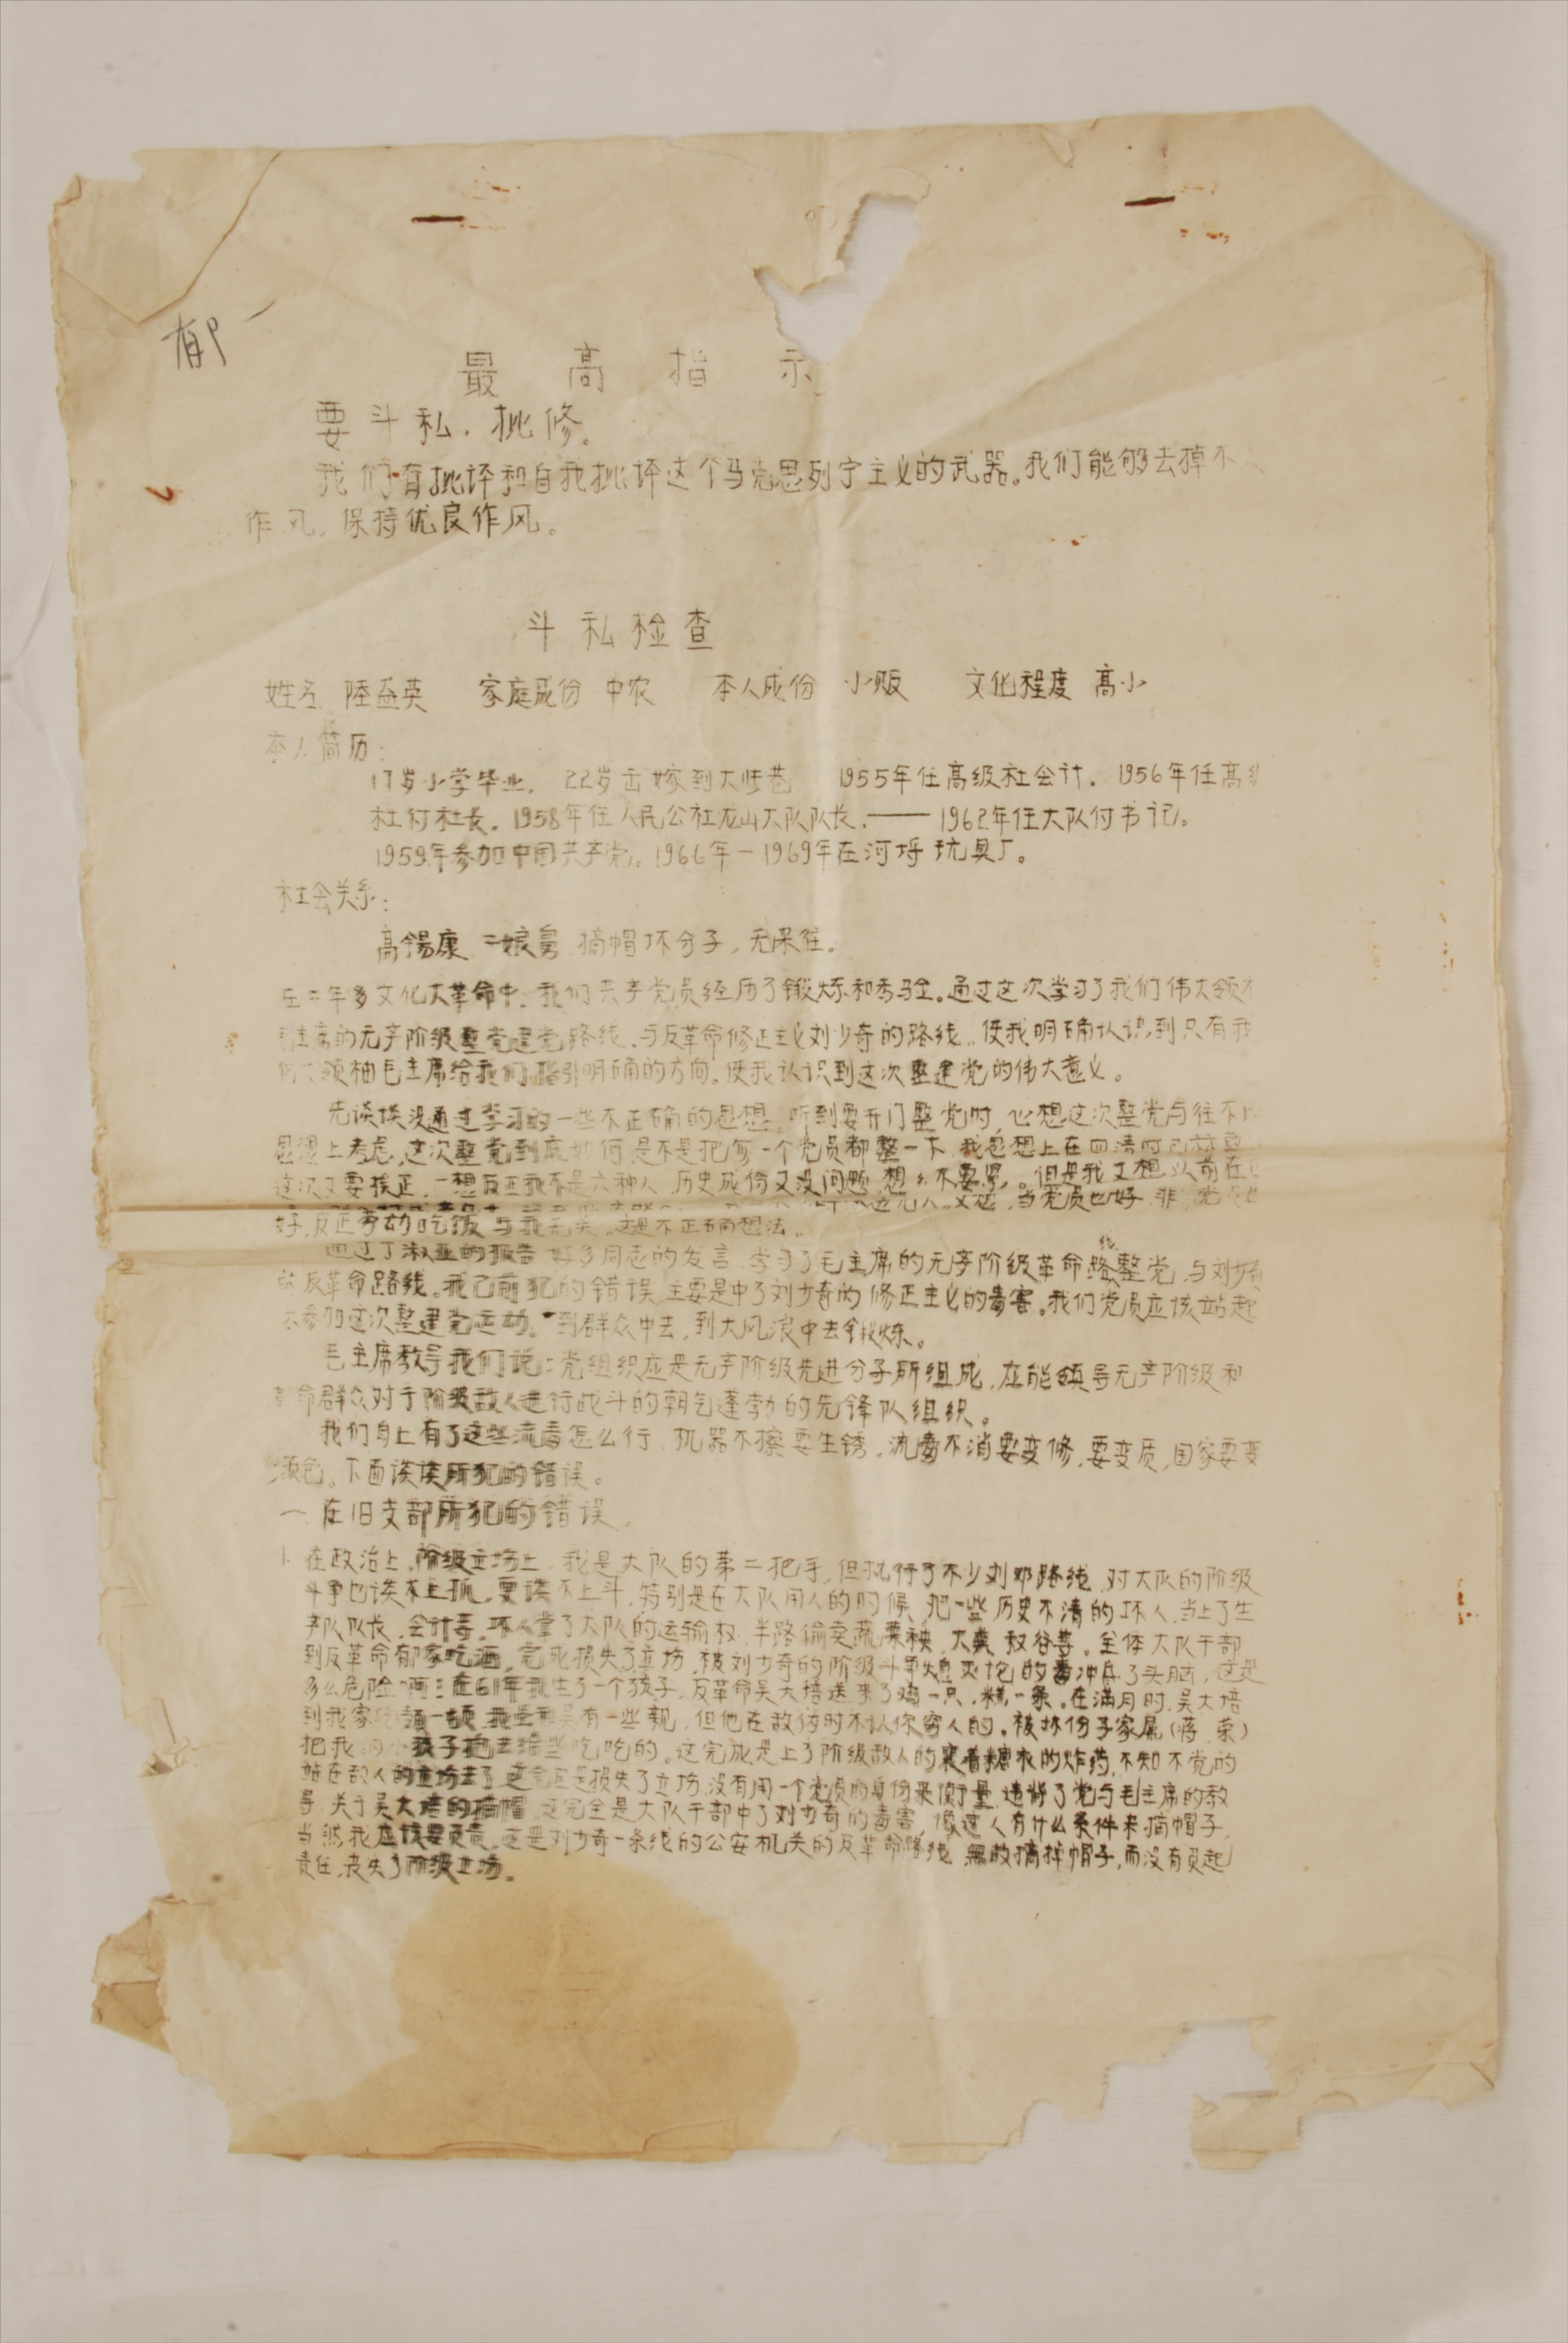 郁
最高指示
要斗私,批修。
我们有批评和自我批评这个马克思列宁主义的武器。我们能够去掉不
作风,保持优良作风。
斗私检查
姓名 陸益英 家庭成份 中农 本人成份 小贩 文化程度 高小
本人简历:
17岁小学毕业, 22岁出嫁到大 巷 1955年任高级社会计. 1956年任高级
社付社长. 1958年任人民公社龙山大队队长.——1962年任大队付书记。
1959年参加中国共产党。1966年-1969年在河埒玩具厂。
社会关系:
高锡康 二娘舅 摘帽坏分子,无来往。
在三年多文化大革命中,我们共产党员经历了锻炼和考验。通过这次学习了我们伟大领
主席的无产阶级整党建党路线,与反革命修正主义刘少奇的路线。使我明确认识到只有我
伟大领袖毛主席给我们指引明确的方向。使我认识到这次整建党的伟大意义。
先谈谈没通过学习的一些不正确的思想。听到要开门整党时,心想这次整党与往不
思想上考虑,这次整党到底如何是不是把每一个党员都整一下,我思想上在四清时已
这次又要挨正,一想反正我不是六种人,历史成份又没问题,想想不要紧。但是我又想,以前在
又想,当党员也好,非党 也
好,反正劳动吃饭,与我无关。这是不正确想法。
通过丁淑亚的报告,好多同志的发言,学习了毛主席的无产阶级革命路线整党,与刘少奇
的反革命路线。我已前犯的错误,主要是中了刘少奇的修正主义的毒害。我们党员应该站起
来参加这次整建党运动。到群众中去,到大风浪中去锻炼。
毛主席教导我们说:党组织应是无产阶级先进分子所组成,应能领导无产阶级和
革命群众对于阶级敌人进行战斗的朝气蓬勃的先锋队组织。
我们身上有了这些流毒怎么行,机器不擦要生锈,流毒不消要变修,要变质,国家要变
颜色。下面谈谈所犯的错误。
一.在旧支部所犯的错误。
1.在政治上,阶级立场上,我是大队的第二把手,但执行了不少刘邓路线,对大队的阶级
斗争也谈不上抓,更谈不上斗,特别是在大队用人的时候,把一些历史不清的坏人,当上了生
产队队长,会计等,坏人掌了大队的运输权,半路偷卖蔬菜秧,大粪,秋谷等。全体大队干部
到反革命郁家吃酒,完成损失了立场,被刘少奇的阶级斗争熄灭论的毒冲昏了头脑,这是
多么危险啊!在61年我生了一个孩子,反革命吴大培送来了鸡一只,糕一条。在满月时,吴大培
到我家吃 一顿,我虽和吴有一些亲,但他在敌伪时不认你穷人的。被坏份子家属(蒋荣)
把我的小孩子抱去给些吃吃的。这完成是上了阶级敌人的裹着糖衣的炸药,不知不觉的
站在敌人的立场去了,这完全是损失了立场,没有用一个党员的身份来衡量,违背了党与毛主席的教
导,关于吴大培的摘帽,这完全是大队干部中了刘少奇的毒害,像这人有什么条件来摘帽子,
当然我应该要负责,这是刘少奇一条线的公安机关的反革命路线,無故摘掉帽子,而没有负起
责任,丧失了阶级立场。